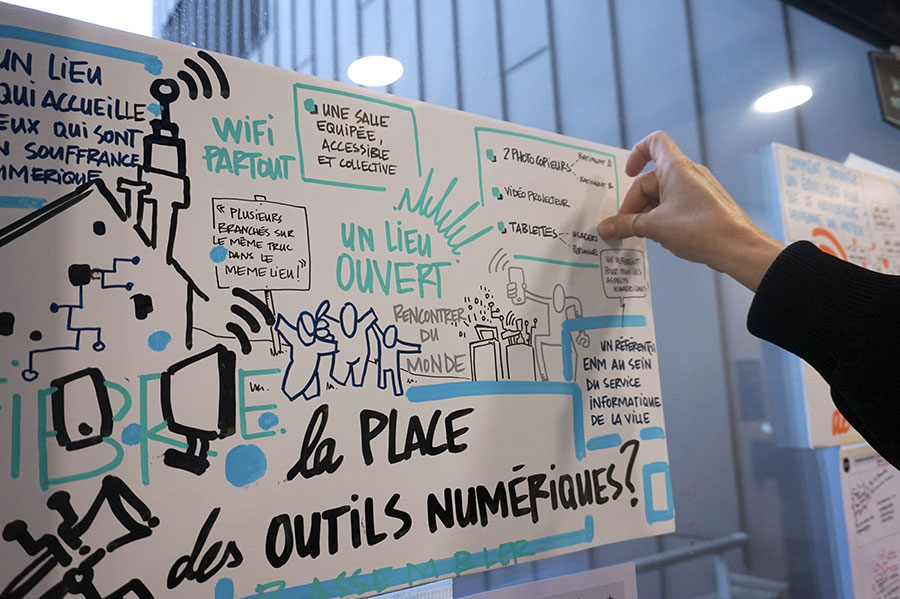 UN LIEU
QUI ACCUEILLE
CEUX QUI SONT
EN SOUFFRANCE
NUMERIQUE
WiFi
PARTOUT
UNE SALLE
EQUIPÉE,
ACCESSIBLE
ET COLLECTIVE
2 PHOTOCOPIEURS
BATIMENT A
BATIMENT B
VIDÉO PROJECTEUR
TABLETTES
USAGERS
PERSONNEL
"PLUSIEURS
BRANCHÉS SUR
LE MÊME TRUC
DANS LE
MEME LIEU!"
UN LIEU
OUVERT
UN REFERENT
POUR TOUS LES
ASPECTS
NUMERIQUES
RENCONTRER
DU
MONDE
UN RÉFÉRENT
ENM AU SEIN
DU SERVICE
INFORMATIQUE
DE LA VILLE
FIBRE
la PLACE
des OUTILS NUMÉRIQUES?
RASSEMBLER